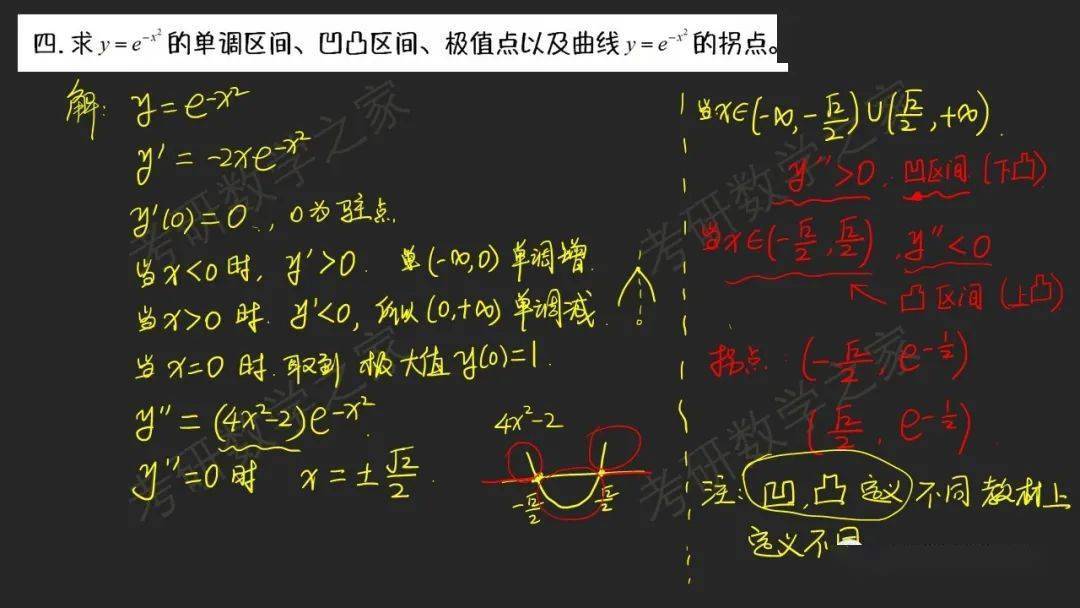 四. 求 y=e^{-x²} 的单调区间、凹凸区间、极值点以及曲线 y=e^{-x²} 的拐点。
解: y=e^{-x²}
y′=-2xe^{-x²}
y′(0)=0 , 0为驻点
当x<0时, y′>0. (-∞,0)单调增.
当x>0时. y′<0, 所以(0,+∞)单调减.
当x=0时.取到 极大值y(0)=1.
y″=(4x²-2)e^{-x²}.
y″=0时 x=±√2/2.
4x²-2
-√2/2 √2/2
当x∈(-∞,-√2/2)∪(√2/2,+∞).
y″>0. 凹区间(下凸)
当x∈(-√2/2,√2/2), y″<0
凸区间(上凸)
拐点: (-√2/2, e^{-1/2})
(√2/2, e^{-1/2}).
注: 凹,凸定义 不同教材上
定义不
考研数学之家
考研数学之家
考研数学之家
考研数学之家